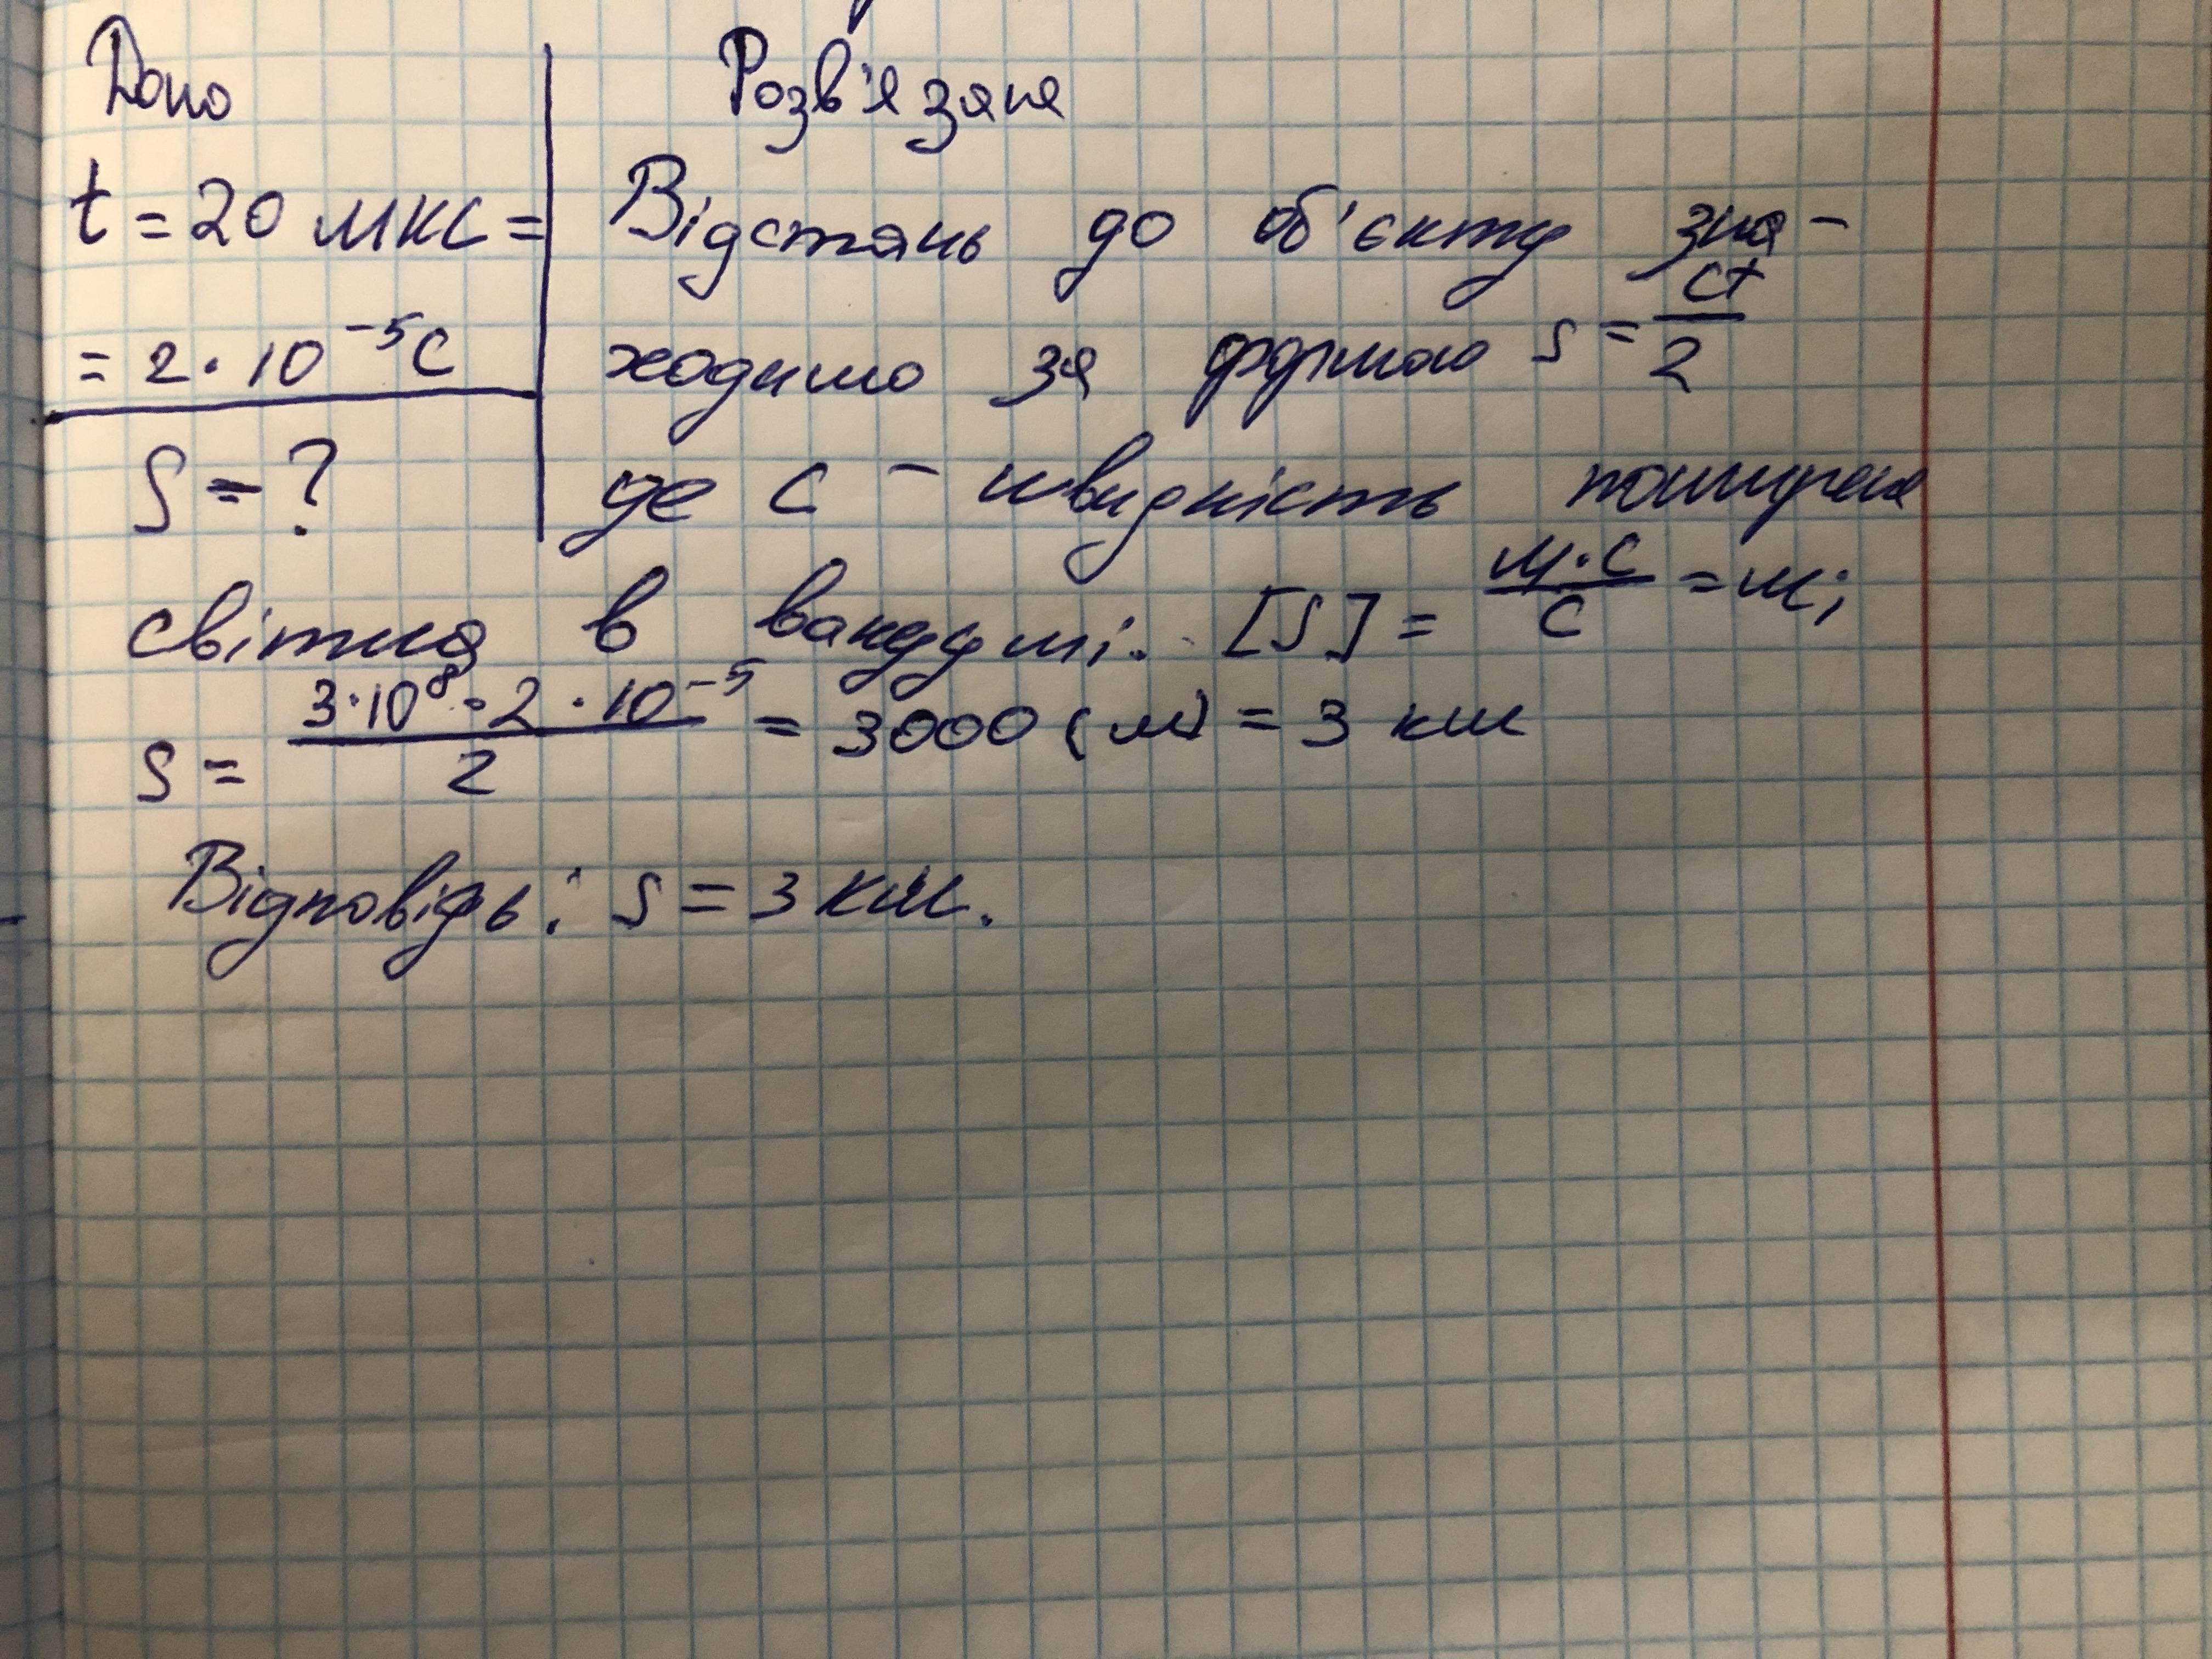 Дано
Розв'язаня
t = 20 мкс =
= 2 · 10⁻⁵ с
S = ?
Відстань до об'єкту зна-
ходимо за формою s = ct/2
де c – швидкість поширеня
світла в вакуумі. [S] = м·с/с = м;
s = 3·10⁸·2·10⁻⁵/2 = 3000 (м) = 3 км
Відповідь: s = 3 км.